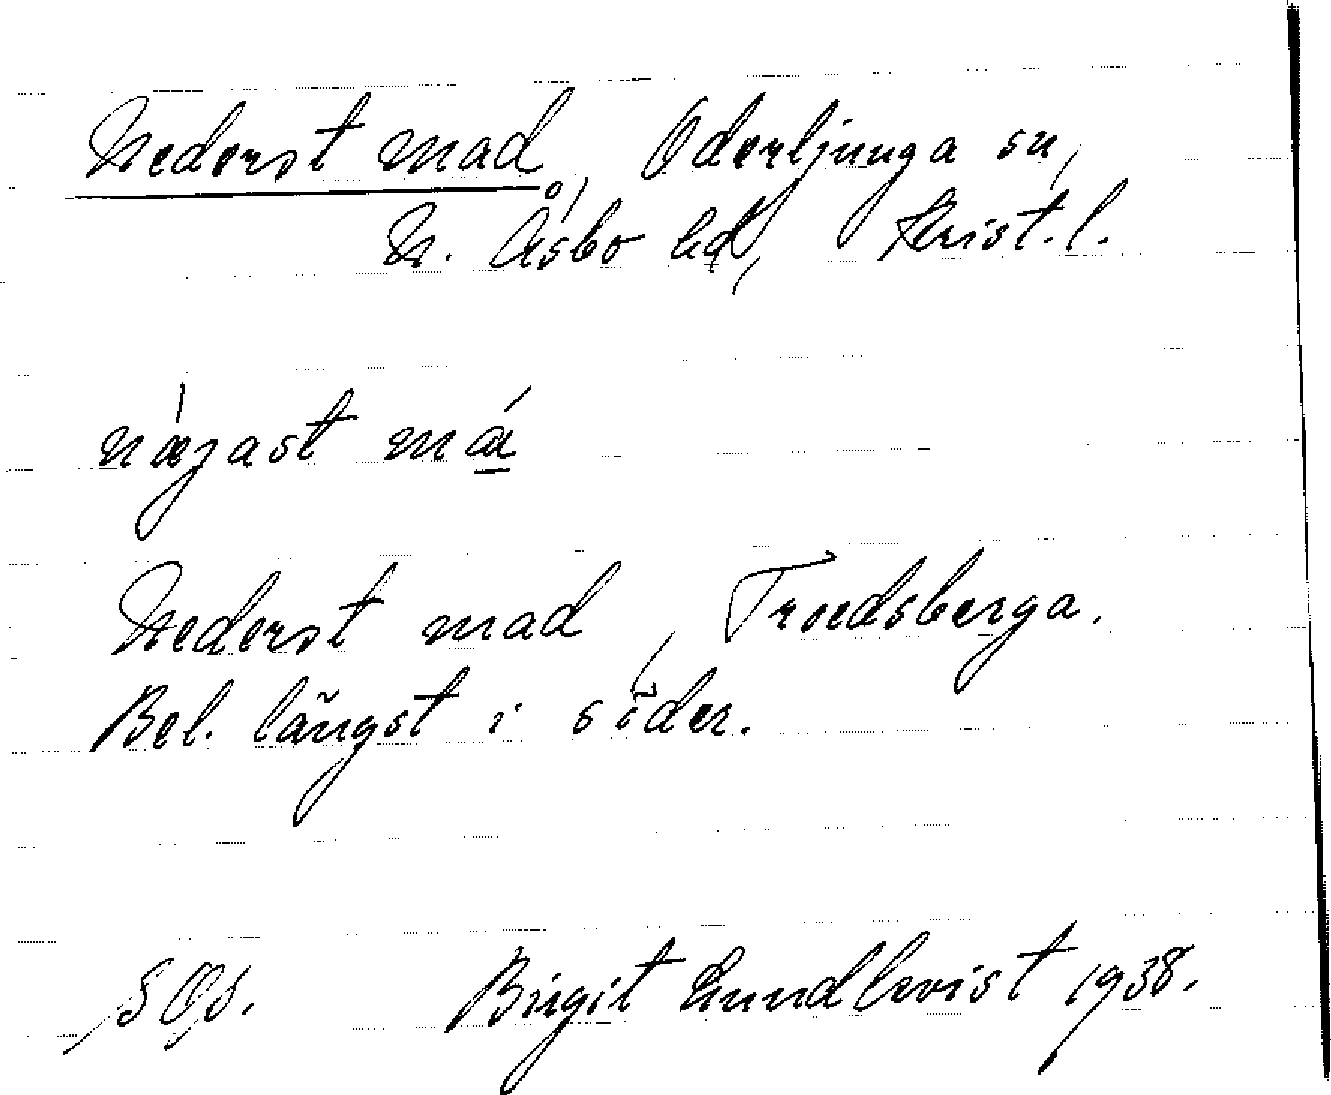 Nederst mad, Oderljunga sn,
N. Åsbo hd, Krist. l.
næjast má
Nederst mad, Troedsberga.
Bel. längst i söder.
Birgit Lundkvist 1938.